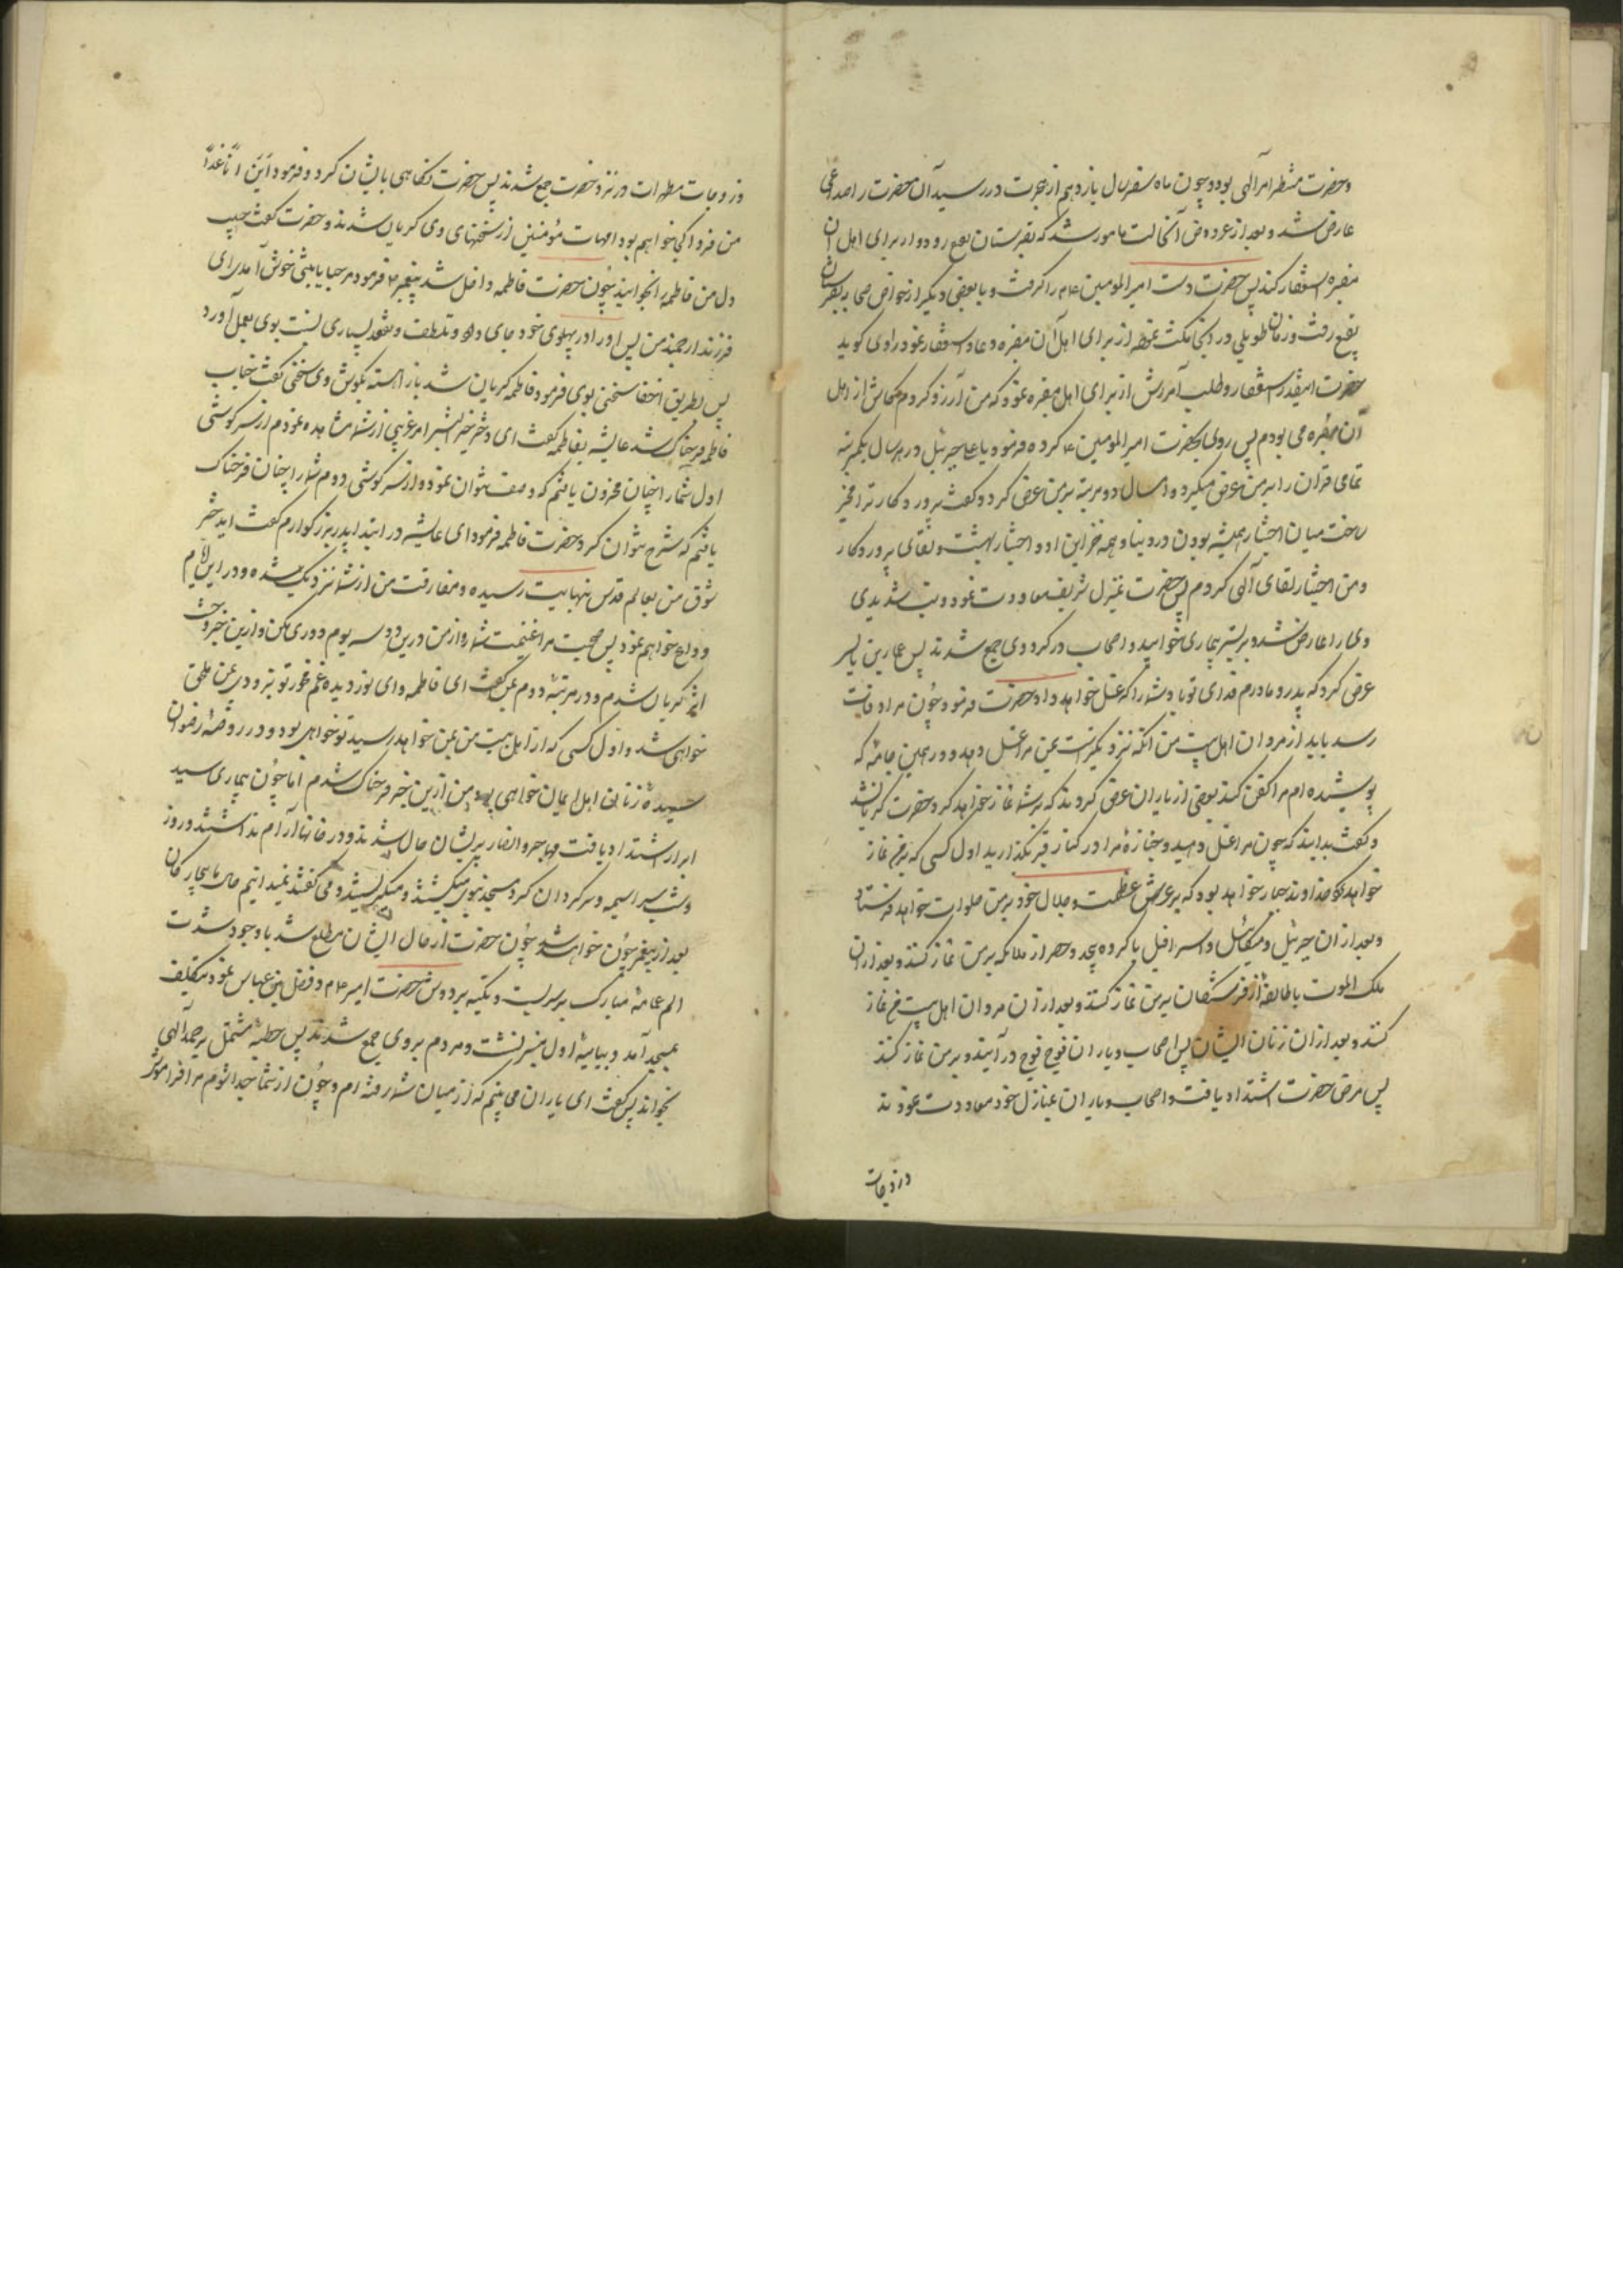 وحضرت منتظر امر آلهی بود و چون ماه صفر سال یازدهم از هجرت در رسید آن حضرت را صداعی
عارض شد و بعد از عروض آنحالت مامور شد که بقبرستان بقیع رود و از برای اهل آن
مقبره استغفار کند پس حضرت دست امیر المومنین ع م را گرفت و با بعضی دیگر از خواص صحابه بقبرستان
بقیع رفت و زمان طویلی در وی مکث نمود از برای اهل آن مقبره دعا و استغفار نمود راوی کوید
حضرت اینقدر استغفار و طلب آمرزش از برای اهل مقبره نمود که من آرزو کردم که کاش از اهل
آن مقبره می بودم پس روی بحضرت امیر المومنین ع م کرده فرمود یا علی جبرئیل در هر سال یکمرتبه
تمامی قرآن را بر من عرض میکرد و امسال دو مرتبه بر من عرض کرد و کفت پروردکار ترا مخیر
ساخت میان اختیار همیشه بودن در دنیا و همه خزاین او و اختیار بهشت و لقای پروردکار
ومن اختیار لقای آلهی کردم پس حضرت بمنزل شریف معاودت نمود و تب شدیدی
وی را عارض شد و بر بستر بیماری خوابید و اصحاب در کرد وی جمع شدند پس عمار بن یاسر
عرض کرد که پدر و مادرم فدای تو باد شما را که غسل خواهد داد حضرت فرمود چون مرا وفات
رسد باید از مردان اهل بیت من آنکه نزدیکتر است بمن مرا غسل دهد و در همین جامه که
پوشیده ام مرا کفن کند بعضی از یاران عرض کردند که بر شما نماز خواهد کرد حضرت کریان شد
وکفت بدانید که چون مرا غسل دهید و جنازه مرا در کنار قبر بگذارید اول کسی که بر من نماز
خواهد کرد خداوند جبار خواهد بود که بر عرش عظمت و جلال خود بر من صلوات خواهد فرستاد
وبعد از ان جبرئیل و میکائیل و اسرافیل با کروه بیحد و حصر از ملائکه بر من نماز کنند و بعد از ان
ملک الموت با طایفه از فرشتکان بر من نماز کنند و بعد از ان مردان اهل بیت من نماز
کنند و بعد از ان زنان ایشان پس اصحاب و یاران فوج فوج در آیند و بر من نماز کنند
پس مرض حضرت اشتداد یافت و اصحاب و یاران بمنازل خود معاودت نمودند
وزوجات
وزوجات مطهرات در نزد حضرت جمع شدند پس حضرت نکاهی بایشان کرد و فرمود این انا غدا
من فردا کجا خواهم بود امهات مؤمنین از سخنهای وی کریان شدند و حضرت کفت حبیب
دل من فاطمه را بخوانید چون حضرت فاطمه داخل شد پیغمبر ص فرمود مرحبا یا بنتی خوش آمدی ای
فرزند ارجمند من پس او را در پهلوی خود جای داد و تلطف و تفقد بسیاری نسبت بوی بعمل آورد
پس بطریق اخفا سخنی بوی فرمود و فاطمه کریان شد باز آهسته بکوش وی سخنی کفت جناب
فاطمه فرحناک شد عایشه بفاطمه کفت ای دختر خیر البشر امر غریبی از شما مشاهده نمودم از سر کوشی
اول شما را چنان محزون یافتم که وصف نتوان نمود و از سر کوشی دوم شما را چنان فرحناک
یافتم که شرح نتوان کرد حضرت فاطمه فرمود ای عایشه در ابتدا پدر بزرکوارم کفت ای دختر
شوق من بعالم قدس بنهایت رسیده و مفارقت من از شما نزدیک شده و در این ایام
وداع خواهم نمود پس صحبت مرا غنیمت شمار و از من در این دو سه یوم دوری مکن و از این خبر وحشت
اثر کریان شدم و در مرتبه دوم بمن کفت ای فاطمه و ای نور دیده غم مخور تو بزودی بمن ملحق
خواهی شد و اول کسی که از اهل بیت من بمن خواهد رسید تو خواهی بود و در روضه رضوان
سیده زنان اهل ایمان خواهی بود من از این خبر فرحناک شدم اما چون بیماری سید
ابرار اشتداد یافت مهاجر و انصار پریشان حال شدند و در خانها آرام نداشتند و روز
وشب سراسیمه و سرکردان کرد مسجد نبوی میکشتند و میکریستند و می کفتند نمیدانیم حال ما بیچارکان
بعد از پیغمبر چون خواهد شد چون حضرت از حال ایشان مطلع شد با وجود شدت
الم عمامه مبارک بر سر بست و تکیه بر دوش حضرت امیر ع م و فضل بن عباس نمود بتکلیف
بمسجد آمد و بپایه اول منبر نشست و مردم بر وی جمع شدند پس خطبه مشتمل بر حمد آلهی
بخواند پس کفت ای یاران می بینم که از میان شما رفته ام و چون از شما جدا شوم مرا فراموش